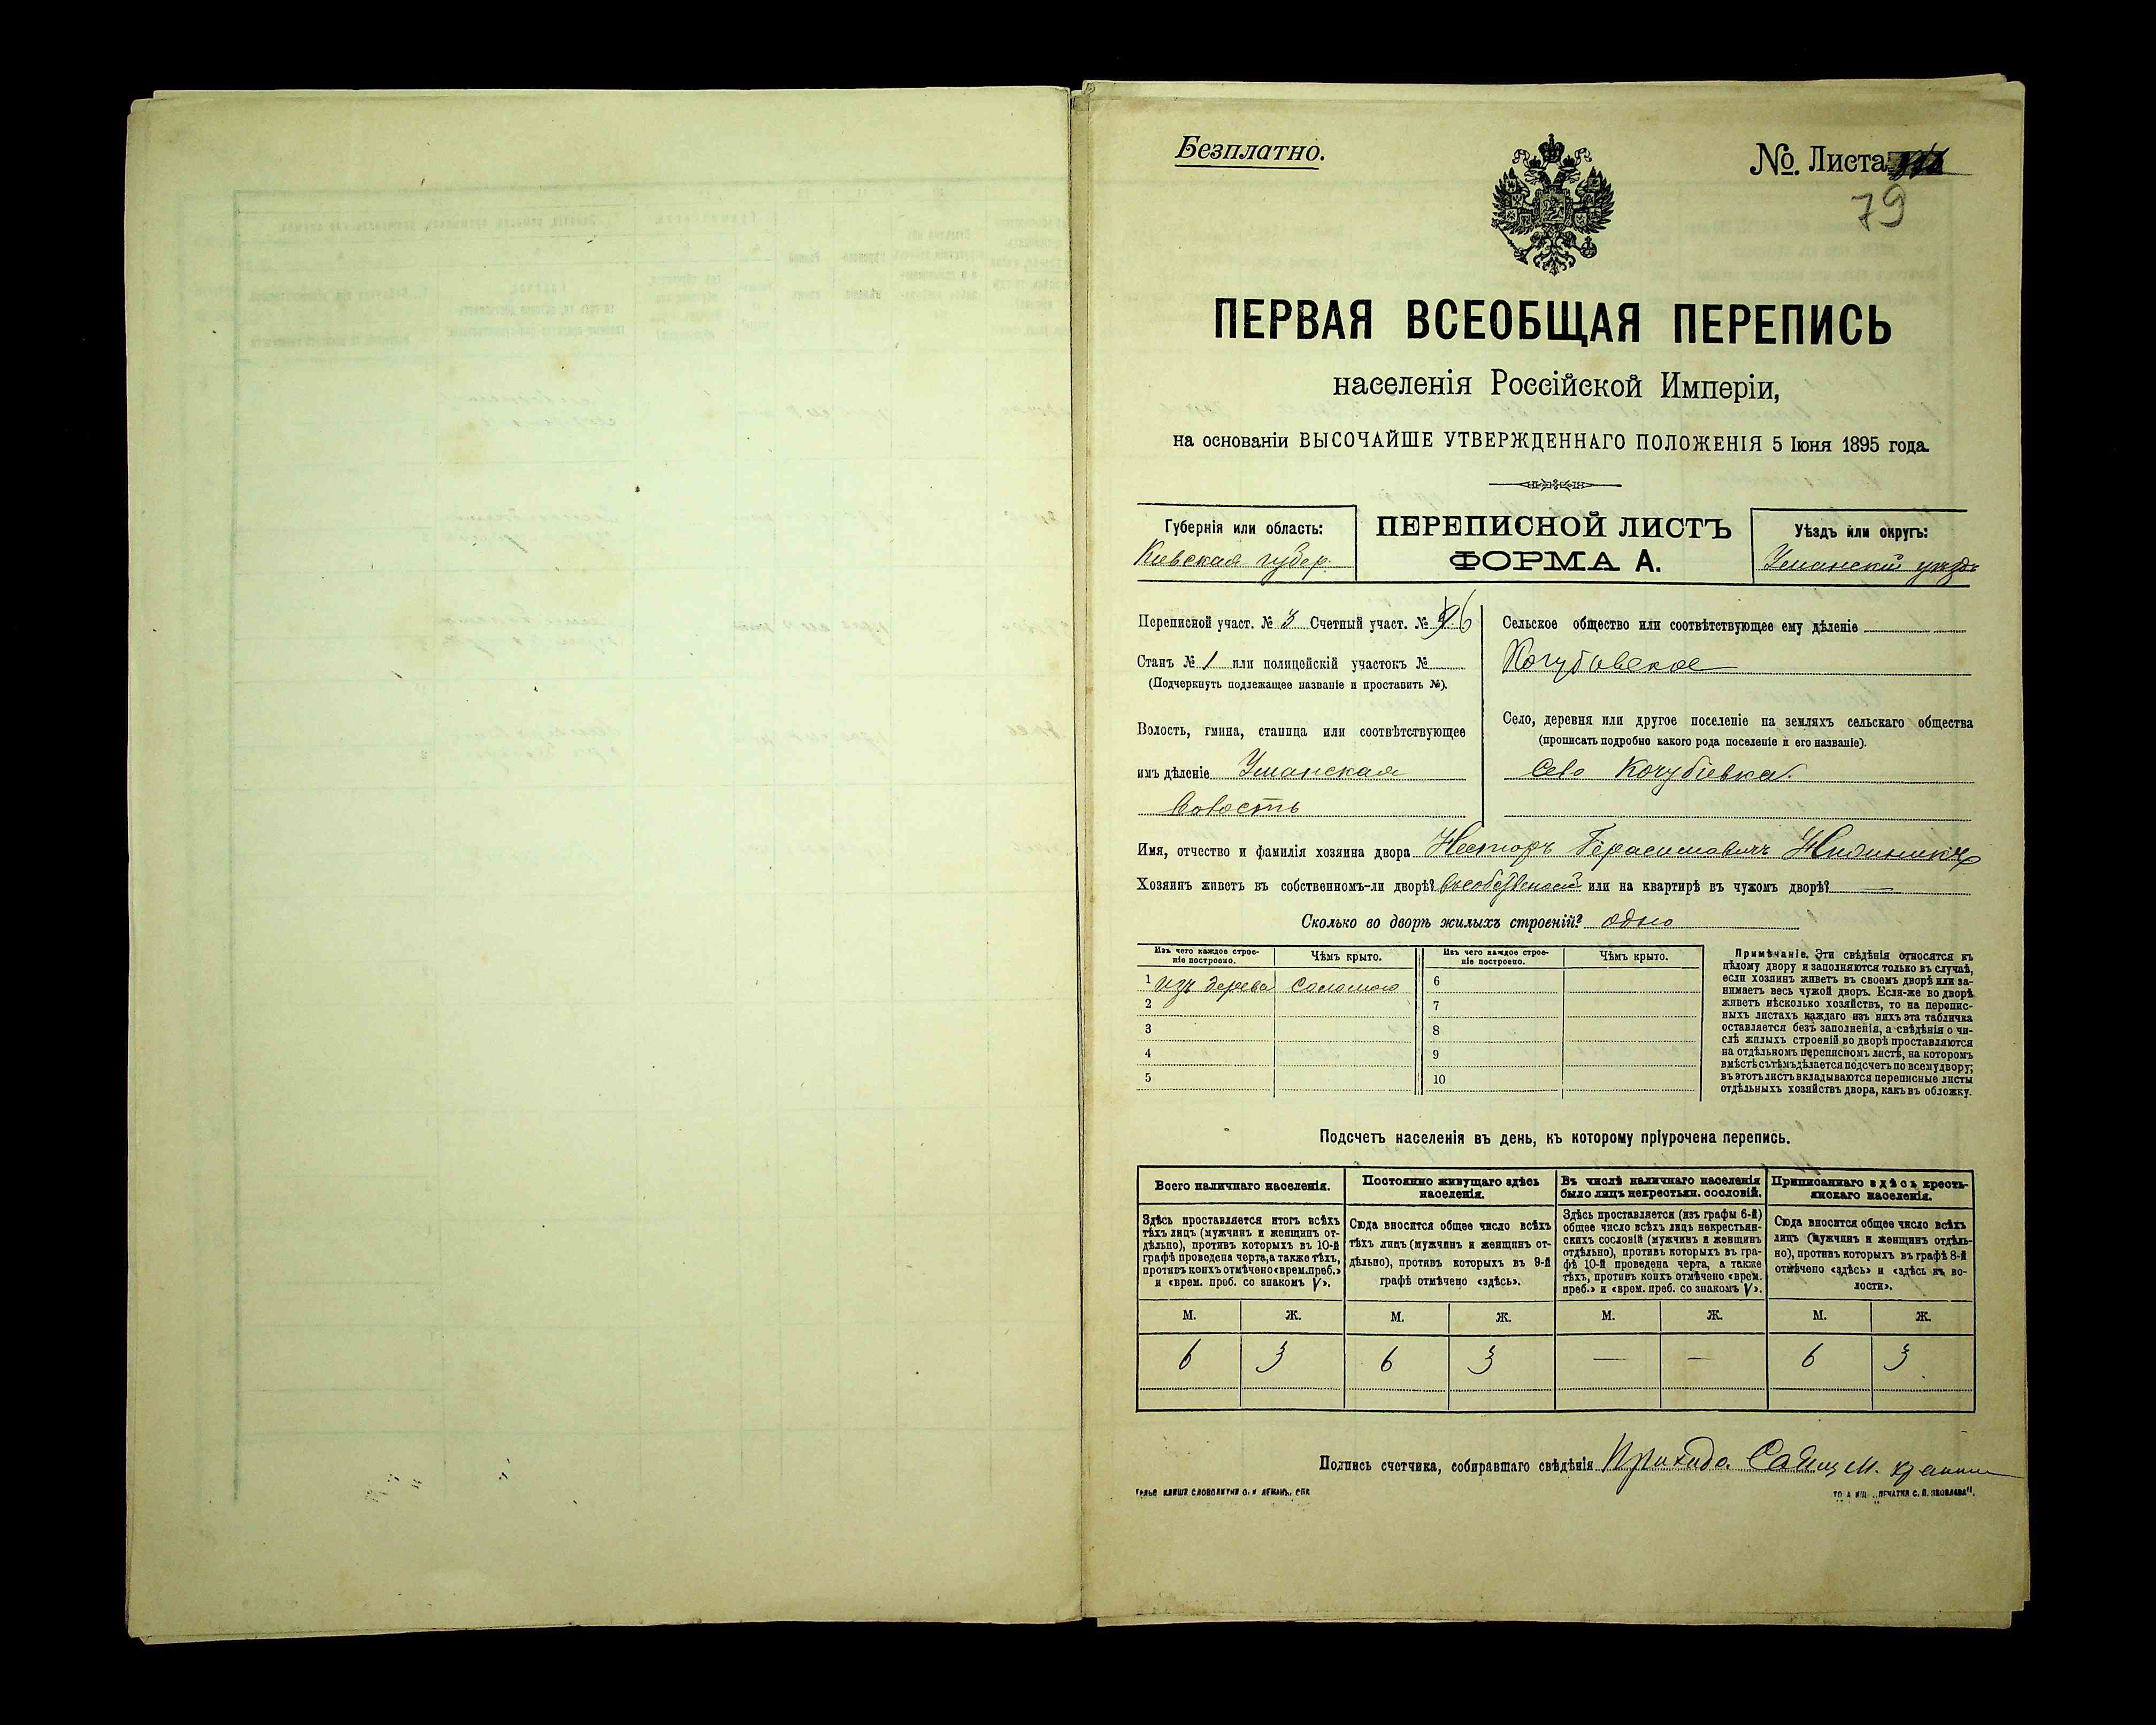 Безплатно.
№. Листа
79
ПЕРВАЯ ВСЕОБЩАЯ ПЕРЕПИСЬ
населенія Россійской Имперіи,
на основаніи ВЫСОЧАЙШЕ УТВЕРЖДЕННАГО ПОЛОЖЕНІЯ 5 Іюня 1895 года.
Губернія или область:
Киевская губер.
ПЕРЕПИСНОЙ ЛИСТЪ
ФОРМА А.
Уѣздъ или округъ:
Уманскій уѣздъ
Переписной участ. № 3 Счетный участ. № 6
Станъ № 1 или полицейскій участокъ №
(Подчеркнуть подлежащее названіе и проставить №).
Волость, гмина, станица или соотвѣтствующее
имъ дѣленіе Уманская
волость
Сельское общество или соотвѣтствующее ему дѣленіе
Кочубіевское
Село, деревня или другое поселеніе на земляхъ сельскаго общества
(прописать подробно какого рода поселеніе и его названіе).
Село Кочубіевка.
Имя, отчество и фамилія хозяина двора Несторъ Герасимовичъ
Хозяинъ живетъ въ собственномъ-ли дворѣ? или на квартирѣ въ чужомъ дворѣ? —
Сколько во дворѣ жилыхъ строеній? одно
Изъ чего каждое строе-
ніе построено.
Чѣмъ крыто.
Изъ чего каждое строе-
ніе построено.
Чѣмъ крыто.
1 изъ дерева соломою
2
3
4
5
6
7
8
9
10
Примѣчаніе. Эти свѣдѣнія относятся къ
цѣлому двору и заполняются только въ случаѣ,
если хозяинъ живетъ въ своемъ дворѣ или за-
нимаетъ весь чужой дворъ. Если-же во дворѣ
живетъ нѣсколько хозяйствъ, то на перепис-
ныхъ листахъ каждаго изъ нихъ эта табличка
оставляется безъ заполненія, а свѣдѣнія о чи-
слѣ жилыхъ строеній во дворѣ проставляются
на отдѣльномъ переписномъ листѣ, на которомъ
вмѣстѣ съ тѣмъ дѣлается подсчетъ по всему двору;
въ этотъ листъ вкладываются переписные листы
отдѣльныхъ хозяйствъ двора, какъ въ обложку.
Подсчетъ населенія въ день, къ которому пріурочена перепись.
Всего наличнаго населенія.
Здѣсь проставляется итогъ всѣхъ
тѣхъ лицъ (мужчинъ и женщинъ от-
дѣльно), противъ которыхъ въ 10-й
графѣ проведена черта, а также тѣхъ,
противъ коихъ отмѣчено «врем. преб.»
и «врем. преб. со знакомъ V».
Постоянно живущаго здѣсь
населенія.
Сюда вносится общее число всѣхъ
тѣхъ лицъ (мужчинъ и женщинъ от-
дѣльно), противъ которыхъ въ 9-й
графѣ отмѣчено «здѣсь».
Въ числѣ наличнаго населенія
было лицъ некрестьян. сословій.
Здѣсь проставляется (изъ графы 6-й)
общее число всѣхъ лицъ некрестьян-
скихъ сословій (мужчинъ и женщинъ
отдѣльно), противъ которыхъ въ гра-
фѣ 10-й проведена черта, а также
тѣхъ, противъ коихъ отмѣчено «врем.
преб.» и «врем. преб. со знакомъ V».
Приписаннаго здѣсь кресть-
янскаго населенія.
Сюда вносится общее число всѣхъ
лицъ (мужчинъ и женщинъ отдѣль-
но), противъ которыхъ въ графѣ 8-й
отмѣчено «здѣсь» и «здѣсь къ во-
лости».
М. Ж. М. Ж. М. Ж. М. Ж.
6 3 6 3 — — 6 3
Подпись счетчика, собиравшаго свѣдѣнія